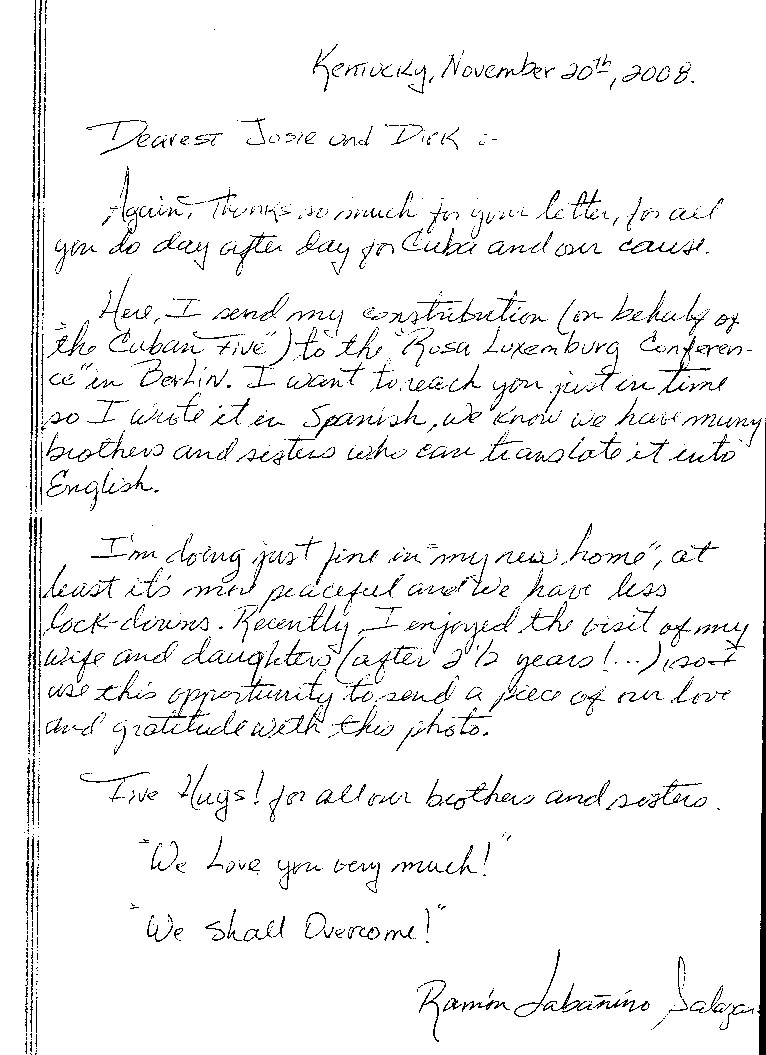 Kentucky, November 20th, 2008.
Dearest Josie and Dirk :-
Again, Thanks so much for your letter, for all
you do day after day for Cuba and our cause.
Here, I send my constribution (on behalf of
"the Cuban Five") to the "Rosa Luxemburg Conferen-
ce" in Berlin. I want to reach you just in time
so I wrote it in Spanish, we know we have many
brothers and sisters who can translate it into
English.
I'm doing just fine in "my new home", at
least it's more peaceful and we have less
lock-downs. Recently, I enjoyed the visit of my
wife and daughters (after 2½ years!...), so I
use this opportunity to send a piece of our love
and gratitude with this photo.
Five Hugs! for all our brothers and sisters.
"We Love you very much!"
"We Shall Overcome!"
Ramón Labañino Salazar